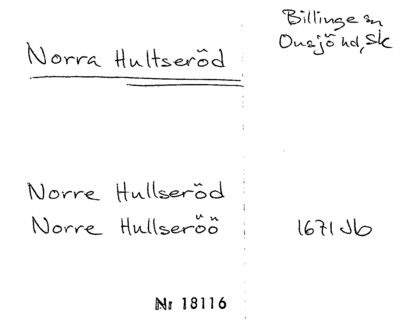 Norra Hultseröd
Billinge sn
Onsjö hd, Sk
Norre Hullseröd
Norre Hullseröö
1671 Jb
Nr 18116